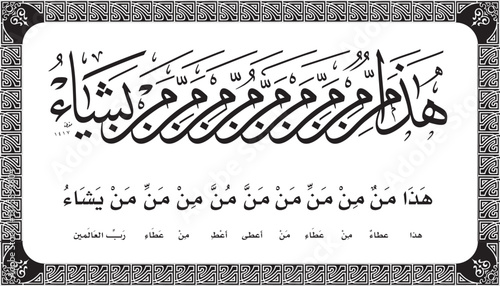 هَذَا مَنٌّ مِنْ مَنِّ مَنْ مَنَّ مُنَّ مِنْ مَنِّ مَنْ يَشَاءُ
هَذَا مَنٌ مِنْ مَنِّ مَنْ مَنَّ مُنَّ مِنْ مَنِّ مَنْ يَشَاءُ
هذا عطاءٌ مِنْ عَطَاءِ مَنْ أعطى أعْطِ مِنْ عَطَاءِ رَبِّ العَالَمين